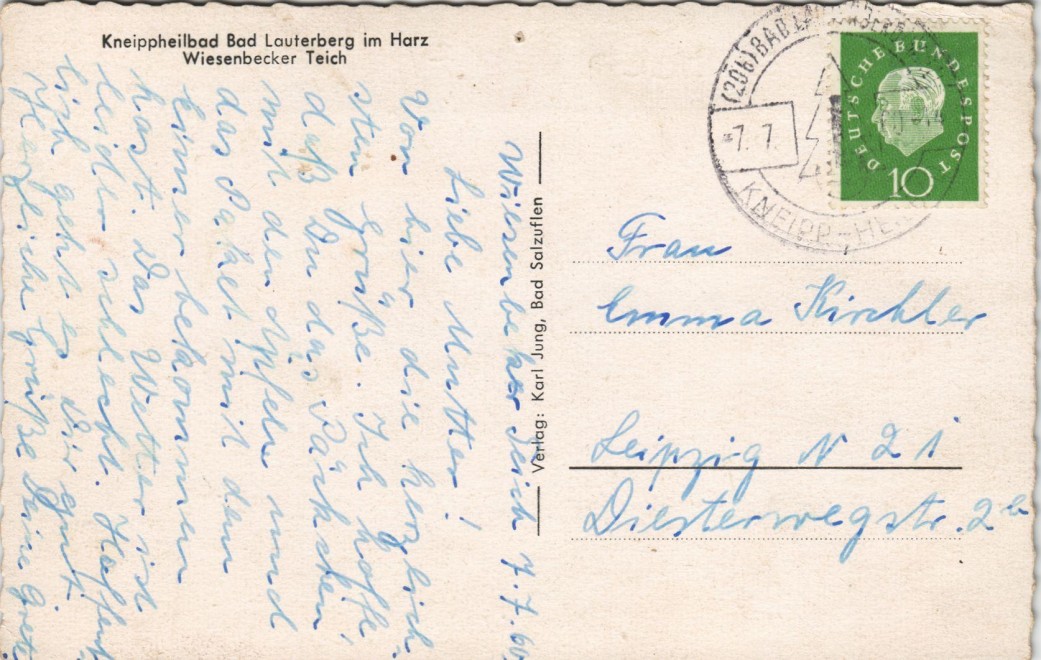 Kneippheilbad Bad Lauterberg im Harz
Wiesenbecker Teich
Wiesenbeker Teich 7.7.60
Liebe Mutter!
Von hier die herzlich-
sten Grüße. Ich hoffe,
daß Du das Päckchen
mit den Äpfeln und
das Paket mit dem
Eimer bekommen
hast. Das Wetter ist
leider schlecht. Hoffent-
lich geht es Dir gut.
Herzliche Grüße Deine Grete
Verlag: Karl Jung, Bad Salzuflen
(20b) BAD LAUTERBERG
-7. 7.
KNEIPP-HE
DEUTSCHE BUNDESPOST
10
Frau
Emma Kirchler
Leipzig N 21
Diesterwegstr. 2b